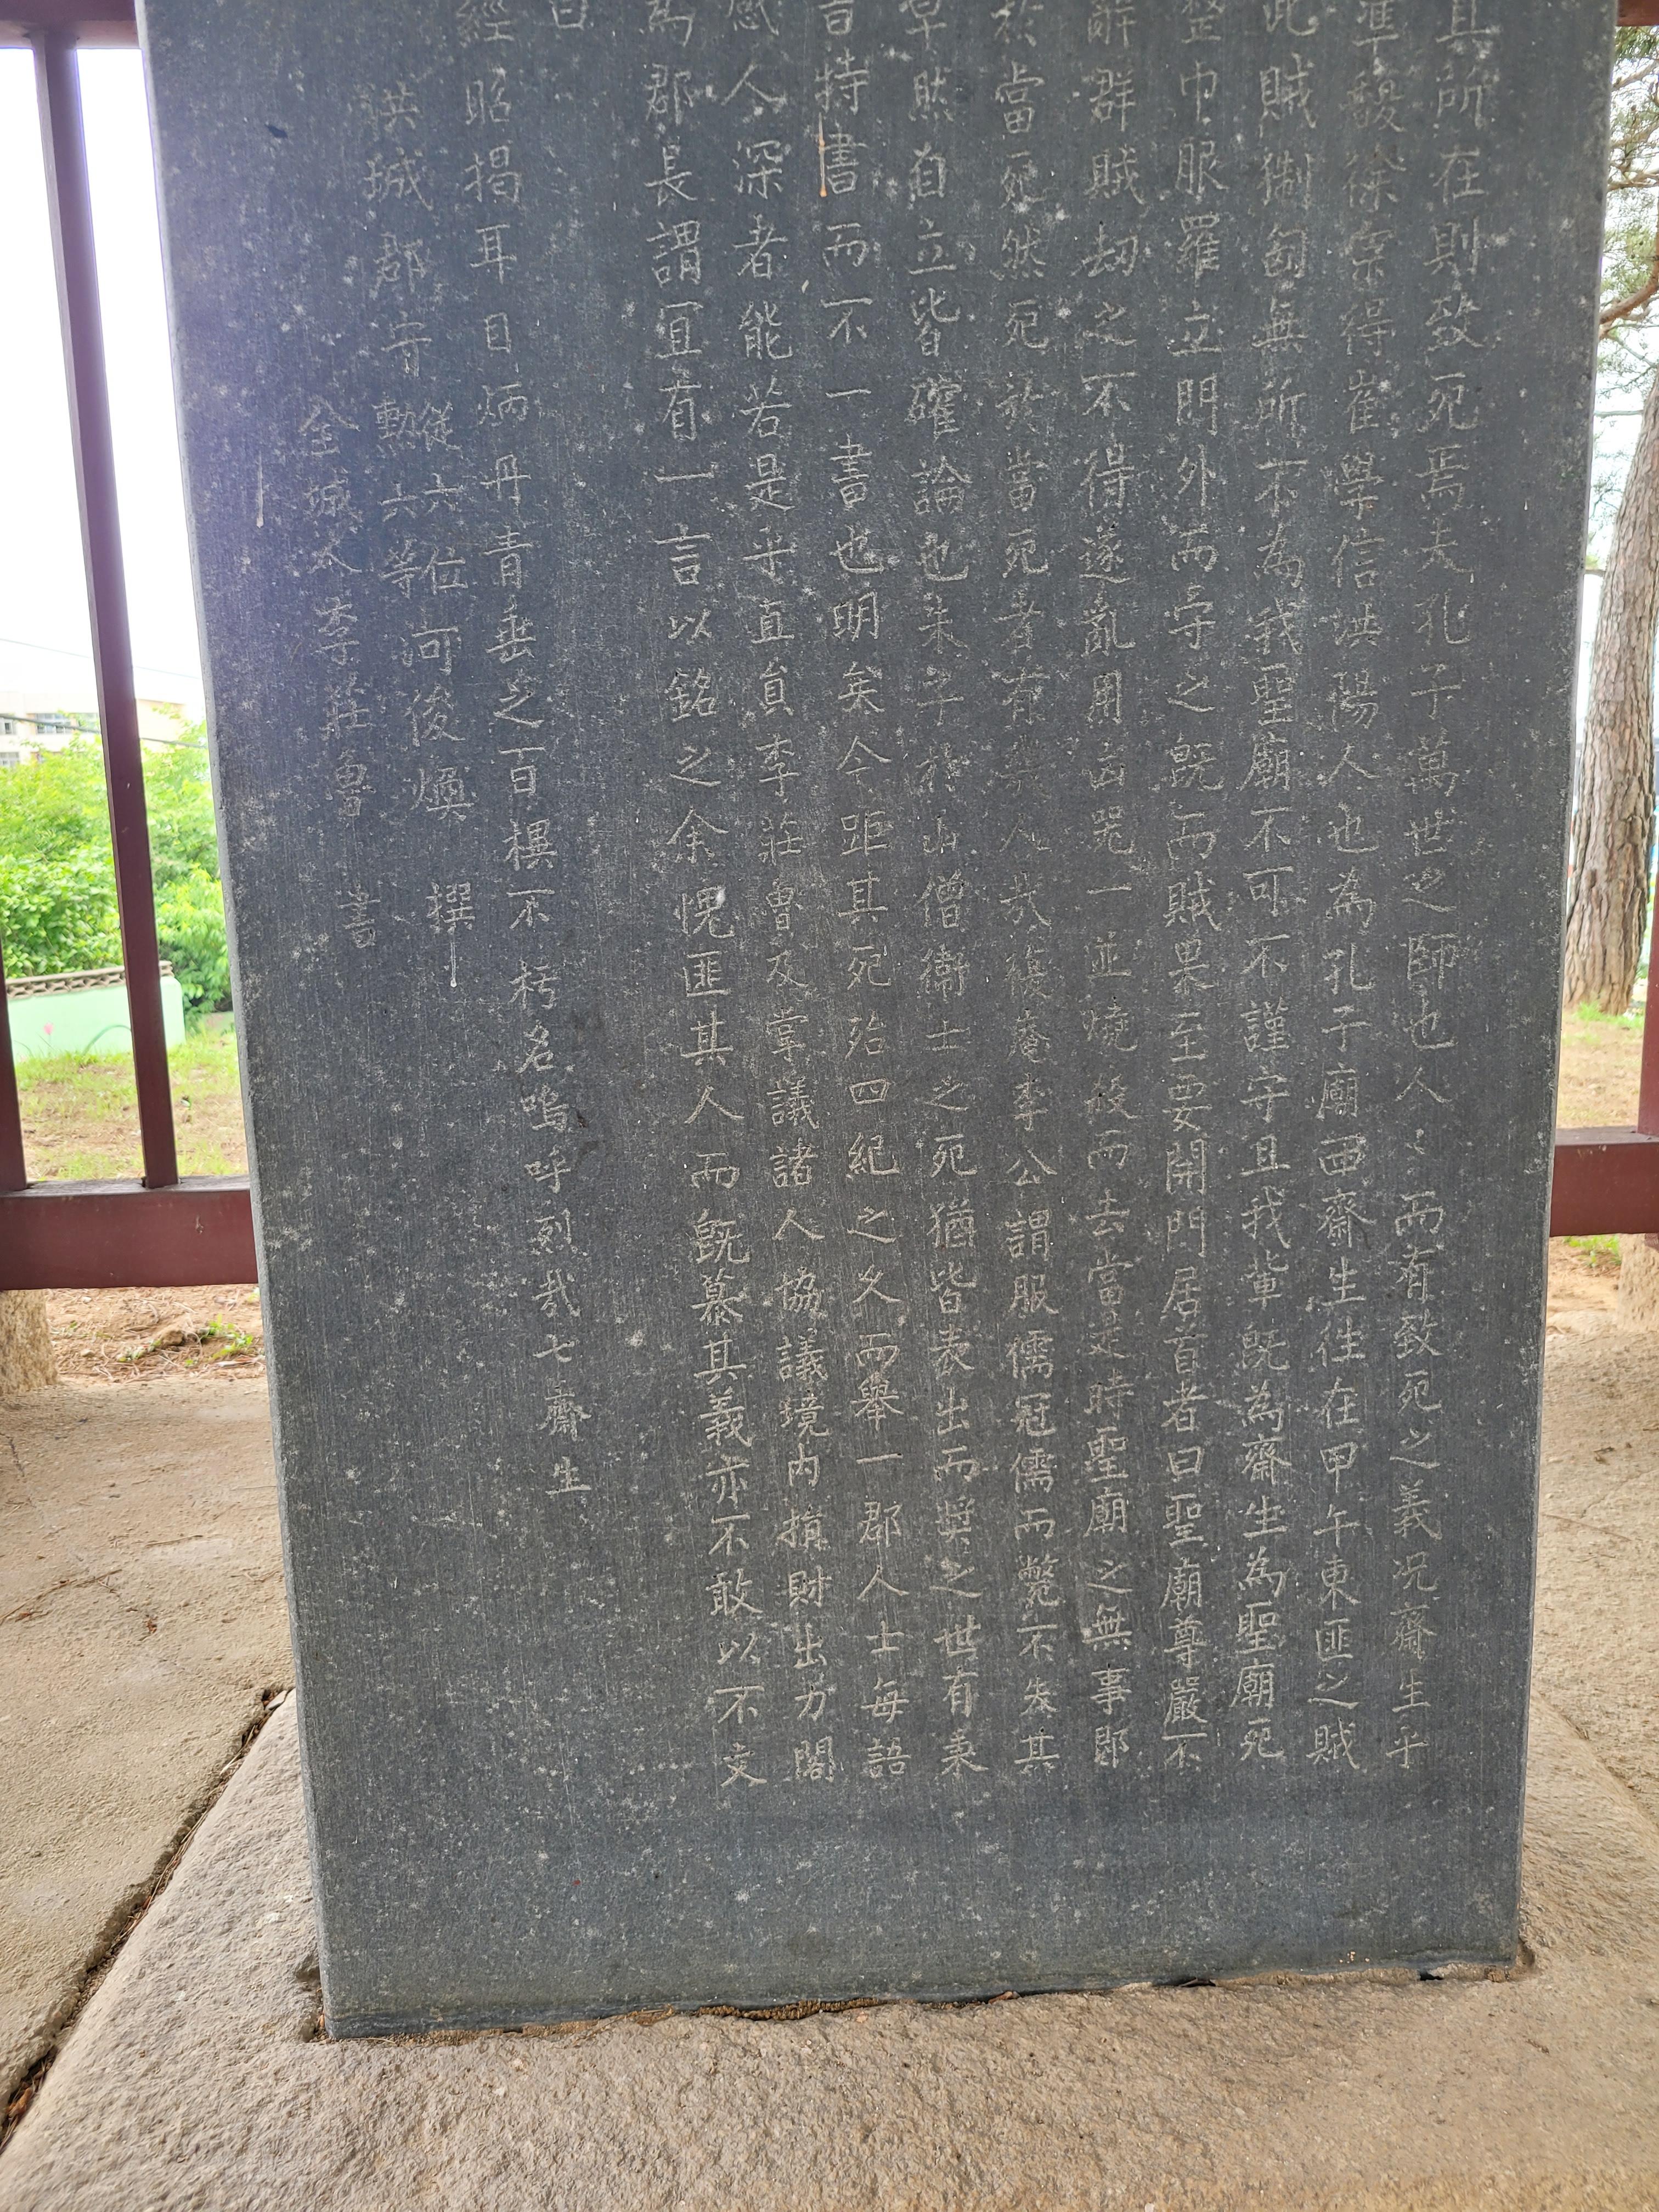 其所在則致死焉夫孔子萬世之師也人〻而有致死之義况齋生乎
準毅徐 得崔學信洪陽人也為孔子廟西齋生往在甲午東匪之賊
此賊 匈無所不為我聖廟不可不謹守且我軰既為齋生為聖廟死
整巾服羅立門外而守之既而賊果至要開門居首者曰聖廟尊嚴不
辭群賊刼之不得遂亂用凶 一並燒殺而去當是時聖廟之無事郡
於當死然死於當死者有幾人哉復庵李公謂服儒冠儒而斃不失其
卓然自立皆確論也朱子於山僧衛士之死猶皆表出而奬之世有秉
言特書而不一書也明矣今距其死殆四紀之久而舉一郡人士每語
感人深者能若是乎直員李莊魯及掌議諸人協議境內損財出力閣
為郡長謂宜有一言以銘之余愧匪其人而既慕其義亦不敢以不文
曰
經昭揭耳目炳丹青垂之百 不朽名嗚呼烈哉七齋生
洪城郡守從六仕勳六等 河俊煥 撰
金城太李莊魯 書